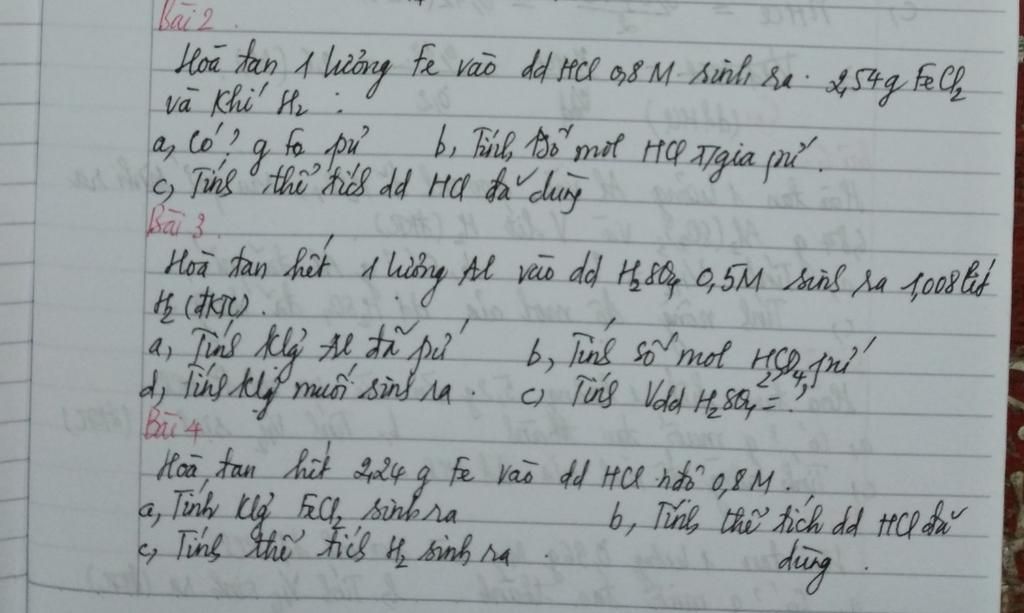 Bài 2.
Hoà tan 1 lượng Fe vào dd HCl 0,8M sinh ra 2,54g FeCl2
và khí H2 :
a, Có ? g Fe pứ b, Tính số mol HCl t/gia pứ.
c, Tính thể tích dd HCl đã dùng
Bài 3.
Hoà tan hết 1 lượng Al vào dd H2SO4 0,5M sinh ra 1,008 lít
H2 (đktc).
a, Tính klg Al đã pứ b, Tính số mol H2SO4 pứ
d, Tính klg muối sinh ra. c, Tính Vdd H2SO4 = ?
Bài 4
Hoà tan hết 2,24 g Fe vào dd HCl nđộ 0,8M.
a, Tính klg FeCl2 sinh ra b, Tính thể tích dd HCl đã
c, Tính thể tích H2 sinh ra. dùng.